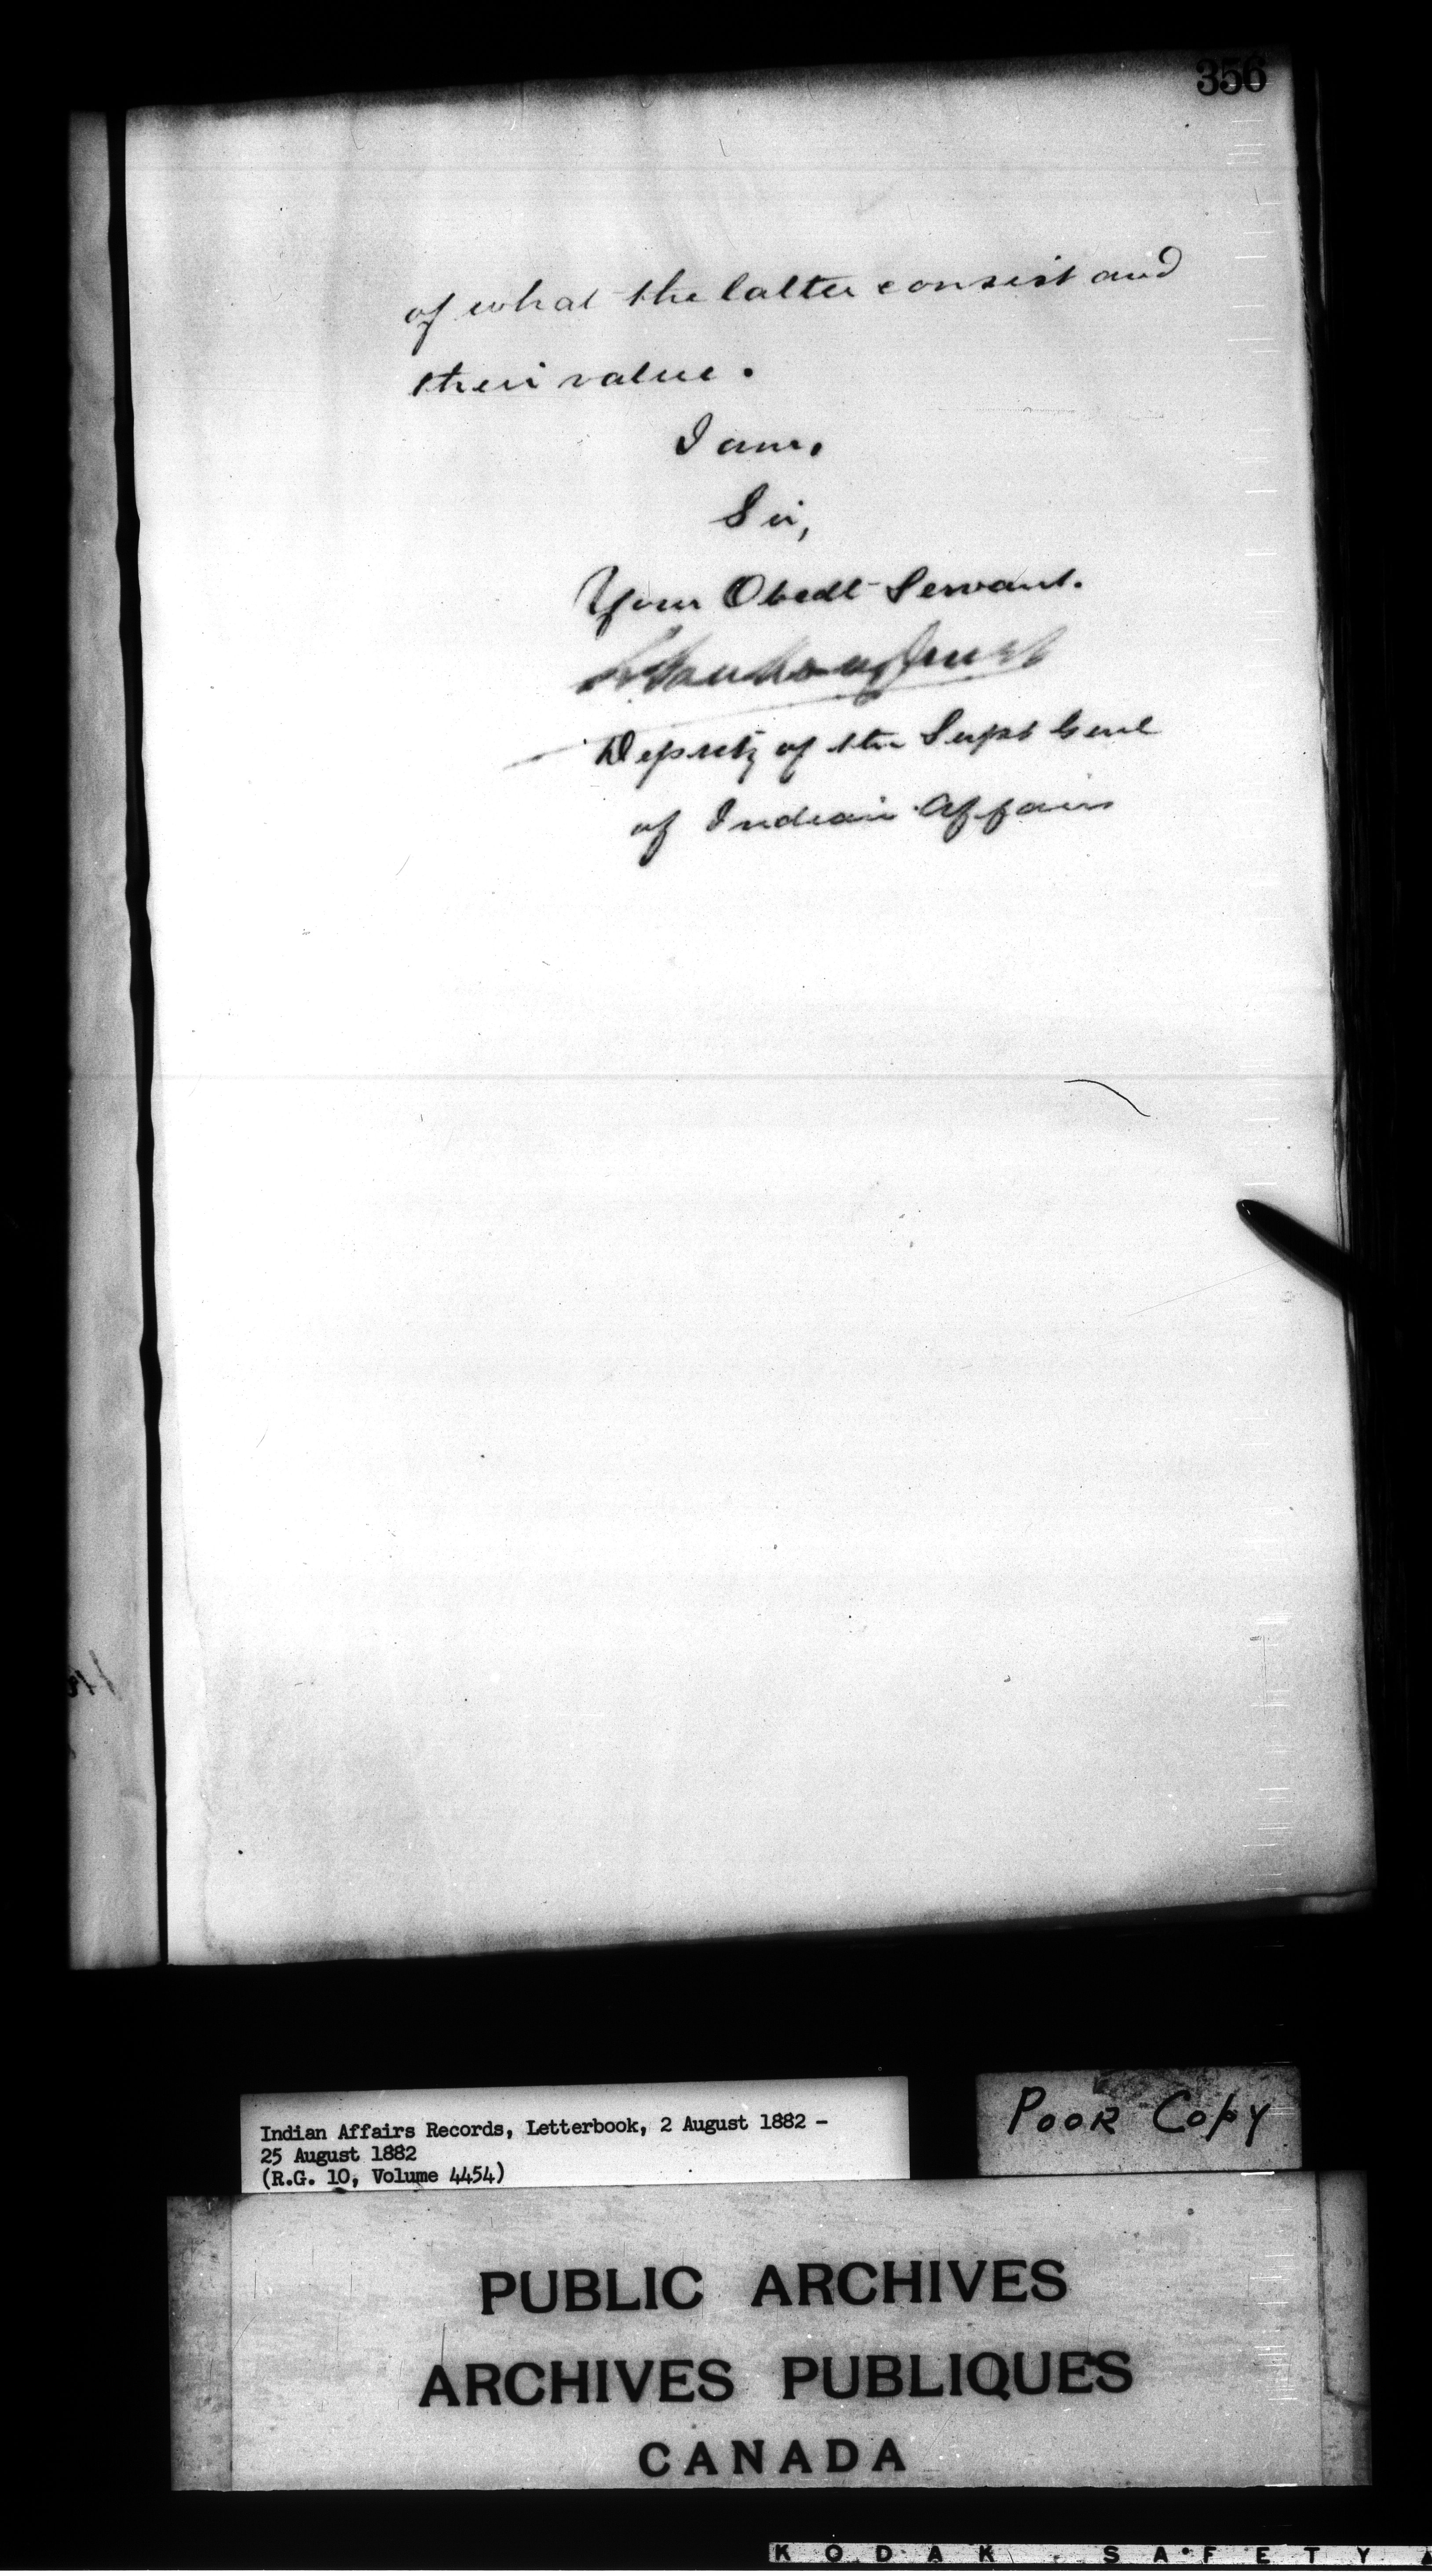 356
of what the latter consist and
their value.
I am,
Sir,
Your Obedt Servant.
L. Vankoughnet
Deputy of the Supt Genl
of Indian Affairs
Indian Affairs Records, Letterbook, 2 August 1882 –
25 August 1882
(R.G. 10, Volume 4454)
POOR COPY
PUBLIC ARCHIVES
ARCHIVES PUBLIQUES
CANADA
KODAK SAFETY